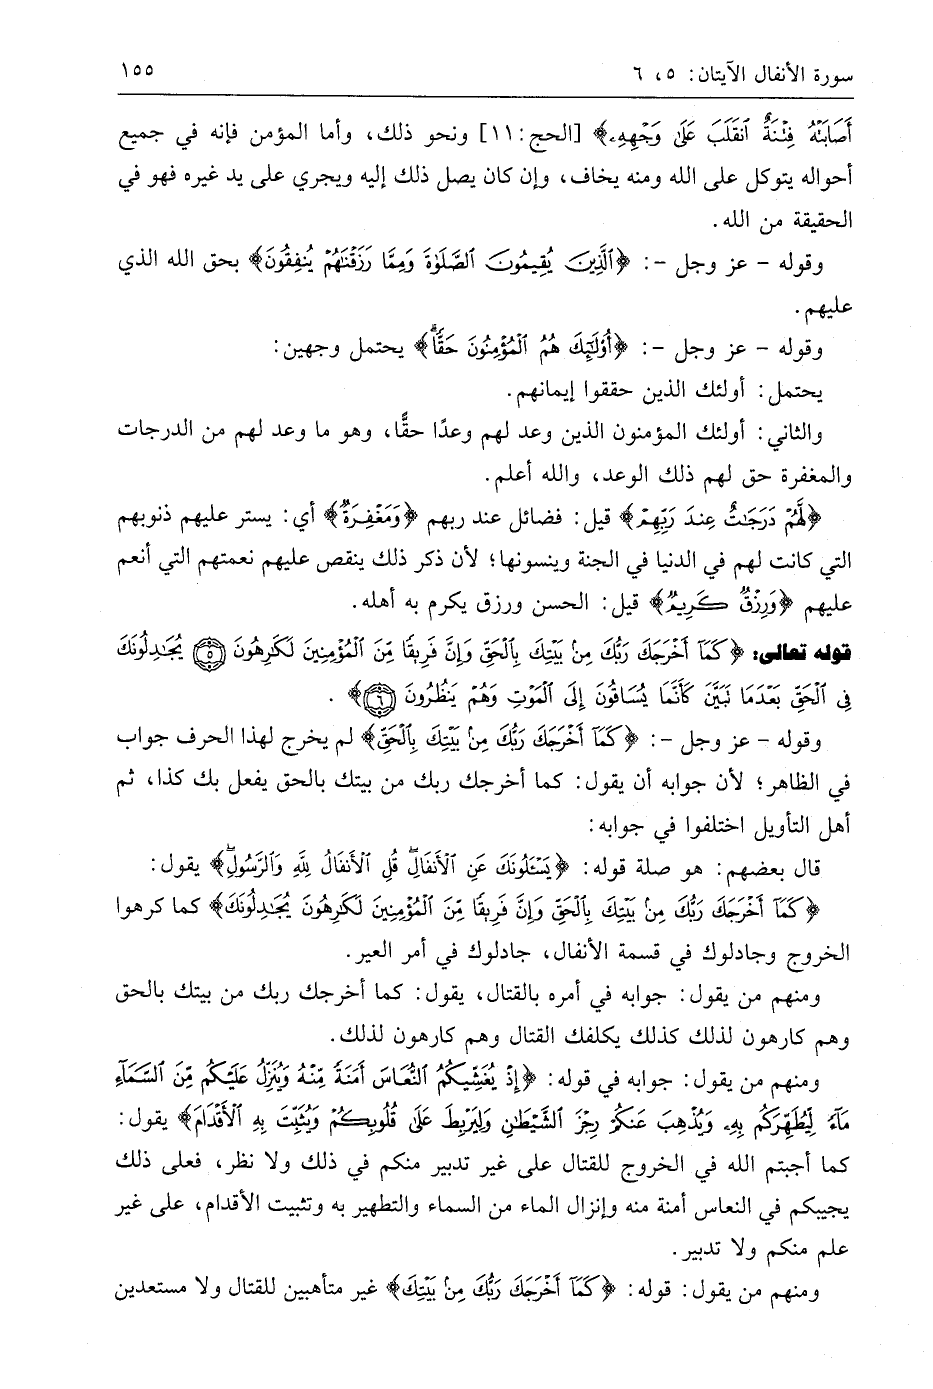 سورة الأنفال الآيتان: ٥، ٦
١٥٥
أَصَابَتْهُ فِتْنَةٌ ٱنقَلَبَ عَلَىٰ وَجْهِهِۦ﴾ [الحج: ١١] ونحو ذلك، وأما المؤمن فإنه في جميع
أحواله يتوكل على الله ومنه يخاف، وإن كان يصل ذلك إليه ويجري على يد غيره فهو في
الحقيقة من الله.
وقوله - عز وجل -: ﴿ٱلَّذِينَ يُقِيمُونَ ٱلصَّلَوٰةَ وَمِمَّا رَزَقْنَٰهُمْ يُنفِقُونَ﴾ بحق الله الذي
عليهم.
وقوله - عز وجل -: ﴿أُوْلَٰٓئِكَ هُمُ ٱلْمُؤْمِنُونَ حَقًّاۚ﴾ يحتمل وجهين:
يحتمل: أولئك الذين حققوا إيمانهم.
والثاني: أولئك المؤمنون الذين وعد لهم وعدًا حقًّا، وهو ما وعد لهم من الدرجات
والمغفرة حق لهم ذلك الوعد، والله أعلم.
﴿لَّهُمْ دَرَجَٰتٌ عِندَ رَبِّهِمْ﴾ قيل: فضائل عند ربهم ﴿وَمَغْفِرَةٌ﴾ أي: يستر عليهم ذنوبهم
التي كانت لهم في الدنيا في الجنة وينسونها؛ لأن ذكر ذلك ينقص عليهم نعمتهم التي أنعم
عليهم ﴿وَرِزْقٌ كَرِيمٌ﴾ قيل: الحسن ورزق يكرم به أهله.
قوله تعالى: ﴿كَمَآ أَخْرَجَكَ رَبُّكَ مِنۢ بَيْتِكَ بِٱلْحَقِّ وَإِنَّ فَرِيقًا مِّنَ ٱلْمُؤْمِنِينَ لَكَٰرِهُونَ ۝٥ يُجَٰدِلُونَكَ
فِى ٱلْحَقِّ بَعْدَمَا تَبَيَّنَ كَأَنَّمَا يُسَاقُونَ إِلَى ٱلْمَوْتِ وَهُمْ يَنظُرُونَ ۝٦﴾ .
وقوله - عز وجل -: ﴿كَمَآ أَخْرَجَكَ رَبُّكَ مِنۢ بَيْتِكَ بِٱلْحَقِّ﴾ لم يخرج لهذا الحرف جواب
في الظاهر؛ لأن جوابه أن يقول: كما أخرجك ربك من بيتك بالحق يفعل بك كذا، ثم
أهل التأويل اختلفوا في جوابه:
قال بعضهم: هو صلة قوله: ﴿يَسْـَٔلُونَكَ عَنِ ٱلْأَنفَالِۖ قُلِ ٱلْأَنفَالُ لِلَّهِ وَٱلرَّسُولِۖ﴾ يقول:
﴿كَمَآ أَخْرَجَكَ رَبُّكَ مِنۢ بَيْتِكَ بِٱلْحَقِّ وَإِنَّ فَرِيقًا مِّنَ ٱلْمُؤْمِنِينَ لَكَٰرِهُونَ يُجَٰدِلُونَكَ﴾ كما كرهوا
الخروج وجادلوك في قسمة الأنفال، جادلوك في أمر العير.
ومنهم من يقول: جوابه في أمره بالقتال، يقول: كما أخرجك ربك من بيتك بالحق
وهم كارهون لذلك كذلك يكلفك القتال وهم كارهون لذلك.
ومنهم من يقول: جوابه في قوله: ﴿إِذْ يُغَشِّيكُمُ ٱلنُّعَاسَ أَمَنَةً مِّنْهُ وَيُنَزِّلُ عَلَيْكُم مِّنَ ٱلسَّمَآءِ
مَآءً لِّيُطَهِّرَكُم بِهِۦ وَيُذْهِبَ عَنكُمْ رِجْزَ ٱلشَّيْطَٰنِ وَلِيَرْبِطَ عَلَىٰ قُلُوبِكُمْ وَيُثَبِّتَ بِهِ ٱلْأَقْدَامَ﴾ يقول:
كما أجبتم الله في الخروج للقتال على غير تدبير منكم في ذلك ولا نظر، فعلى ذلك
يجيبكم في النعاس أمنة منه وإنزال الماء من السماء والتطهير به وتثبيت الأقدام، على غير
علم منكم ولا تدبير.
ومنهم من يقول: قوله: ﴿كَمَآ أَخْرَجَكَ رَبُّكَ مِنۢ بَيْتِكَ﴾ غير متأهبين للقتال ولا مستعدين